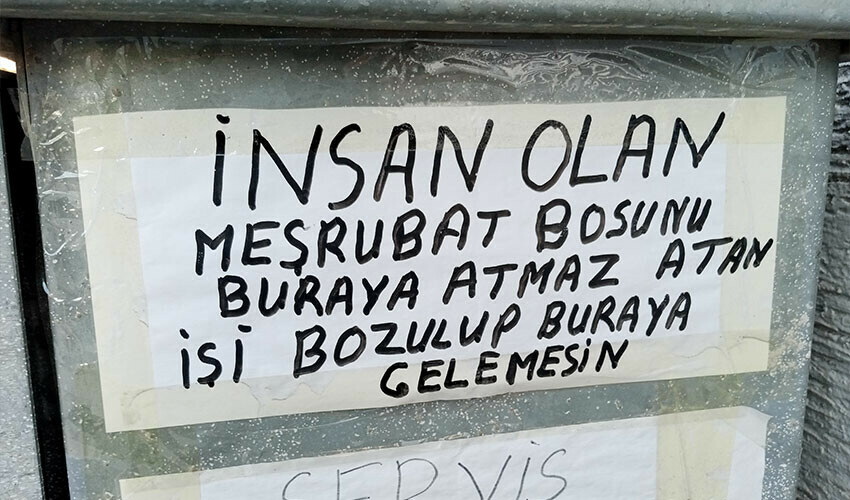 İNSAN OLAN
MEŞRUBAT BOSUNU
BURAYA ATMAZ ATAN
İŞİ BOZULUP BURAYA
GELEMESİN
SERVİS